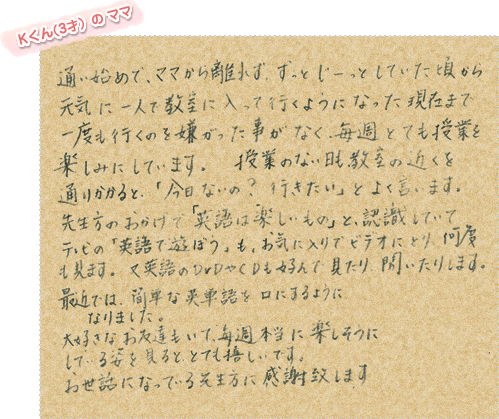 Kくん(3才)のママ
通い始めで、ママから離れず、ずっとじーっとしていた頃から
元気に一人で教室に入って行くようになった現在まで
一度も行くのを嫌がった事がなく、毎週とても授業を
楽しみにしています。 授業のない日も教室の近くを
通りかかると、「今日ないの？行きたい」とよく言います。
先生方のおかげで「英語は楽しいもの」と、認識していて
テレビの「英語で遊ぼう」も、お気に入りでビデオにとり、何度
も見ます。又英語のDVDやCDも好んで見たり、聞いたりします。
最近では、簡単な英単語を口にするように
なりました。
大好きなお友達もいて、毎週本当に楽しそうに
している姿を見ると、とても嬉しいです。
お世話になっている先生方に感謝致します